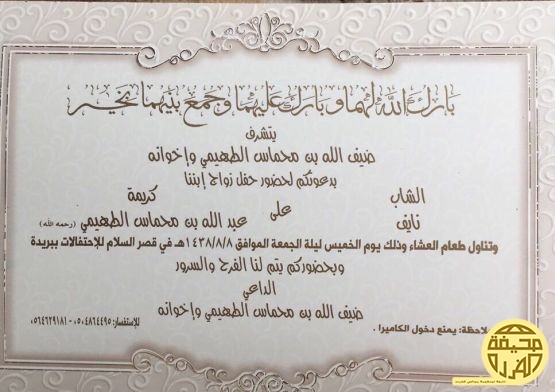 بارك الله لهما وبارك عليهما وجمع بينهما بخير
يتشرف
ضيف الله بن محماس الطهيمي وإخوانه
بدعوتكم لحضور حفل زواج إبننا
الشاب كريمة
نايف على عبد الله بن محماس الطهيمي (رحمه الله)
وتناول طعام العشاء وذلك يوم الخميس ليلة الجمعة الموافق ١٤٣٨/٨/٨هـ في قصر السلام للإحتفالات ببريدة
وبحضوركم يتم لنا الفرح والسرور
الداعي
ضيف الله بن محماس الطهيمي وإخوانه
ملاحظة: يمنع دخول الكاميرا. للإستفسار: ٠٥٠٤٨٦٤٤٩٥ - ٠٥٦٤٦٢٩١٨١
صحيفة